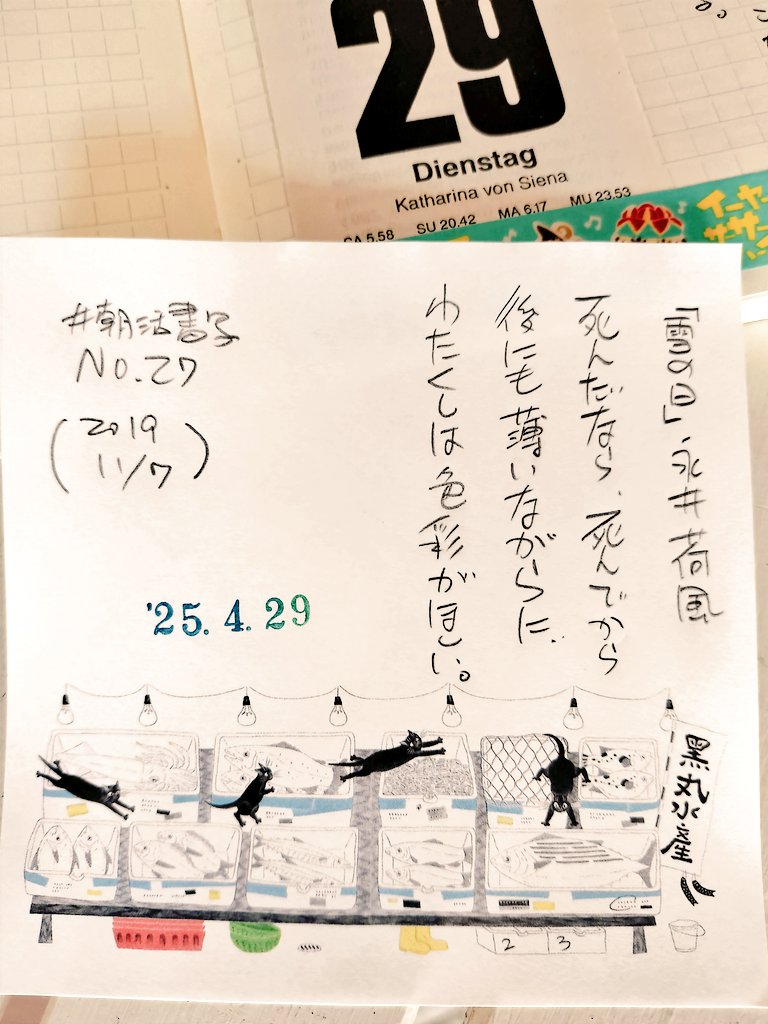 29
Dienstag
Katharina von Siena
SA 5.58 SU 20.42 MA 6.17 MU 23.53
「雪の日」永井荷風
死んだなら、死んでから
後にも薄いながらに、
わたくしは色彩がほしい。
#朝活書写
No.27
(2019
11/7)
'25.4.29
黒丸水産
2
3